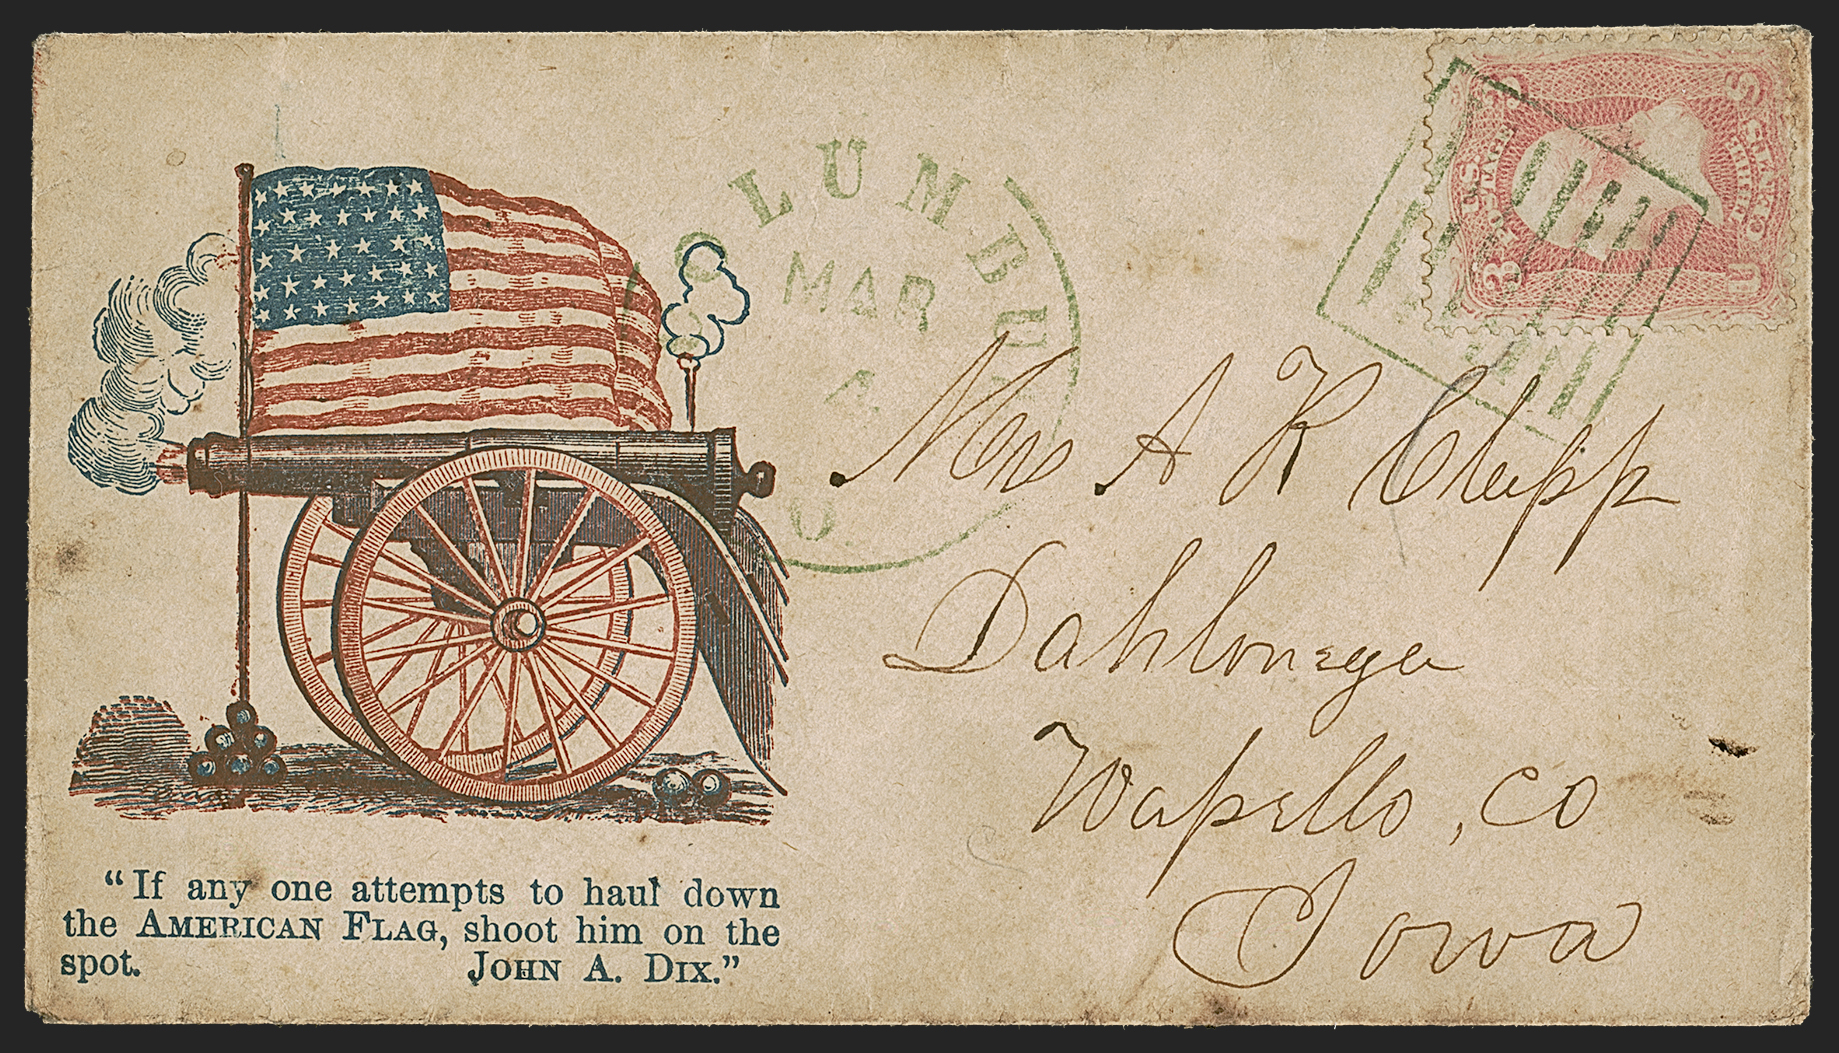 "If any one attempts to haul down
the AMERICAN FLAG, shoot him on the
spot. JOHN A. DIX."
LUMBUS
MAR
4
O
U.S. POSTAGE
3 THREE CENTS 3
U S
Mr A K Clapp
Dahlonega
Wapello, Co
Iowa